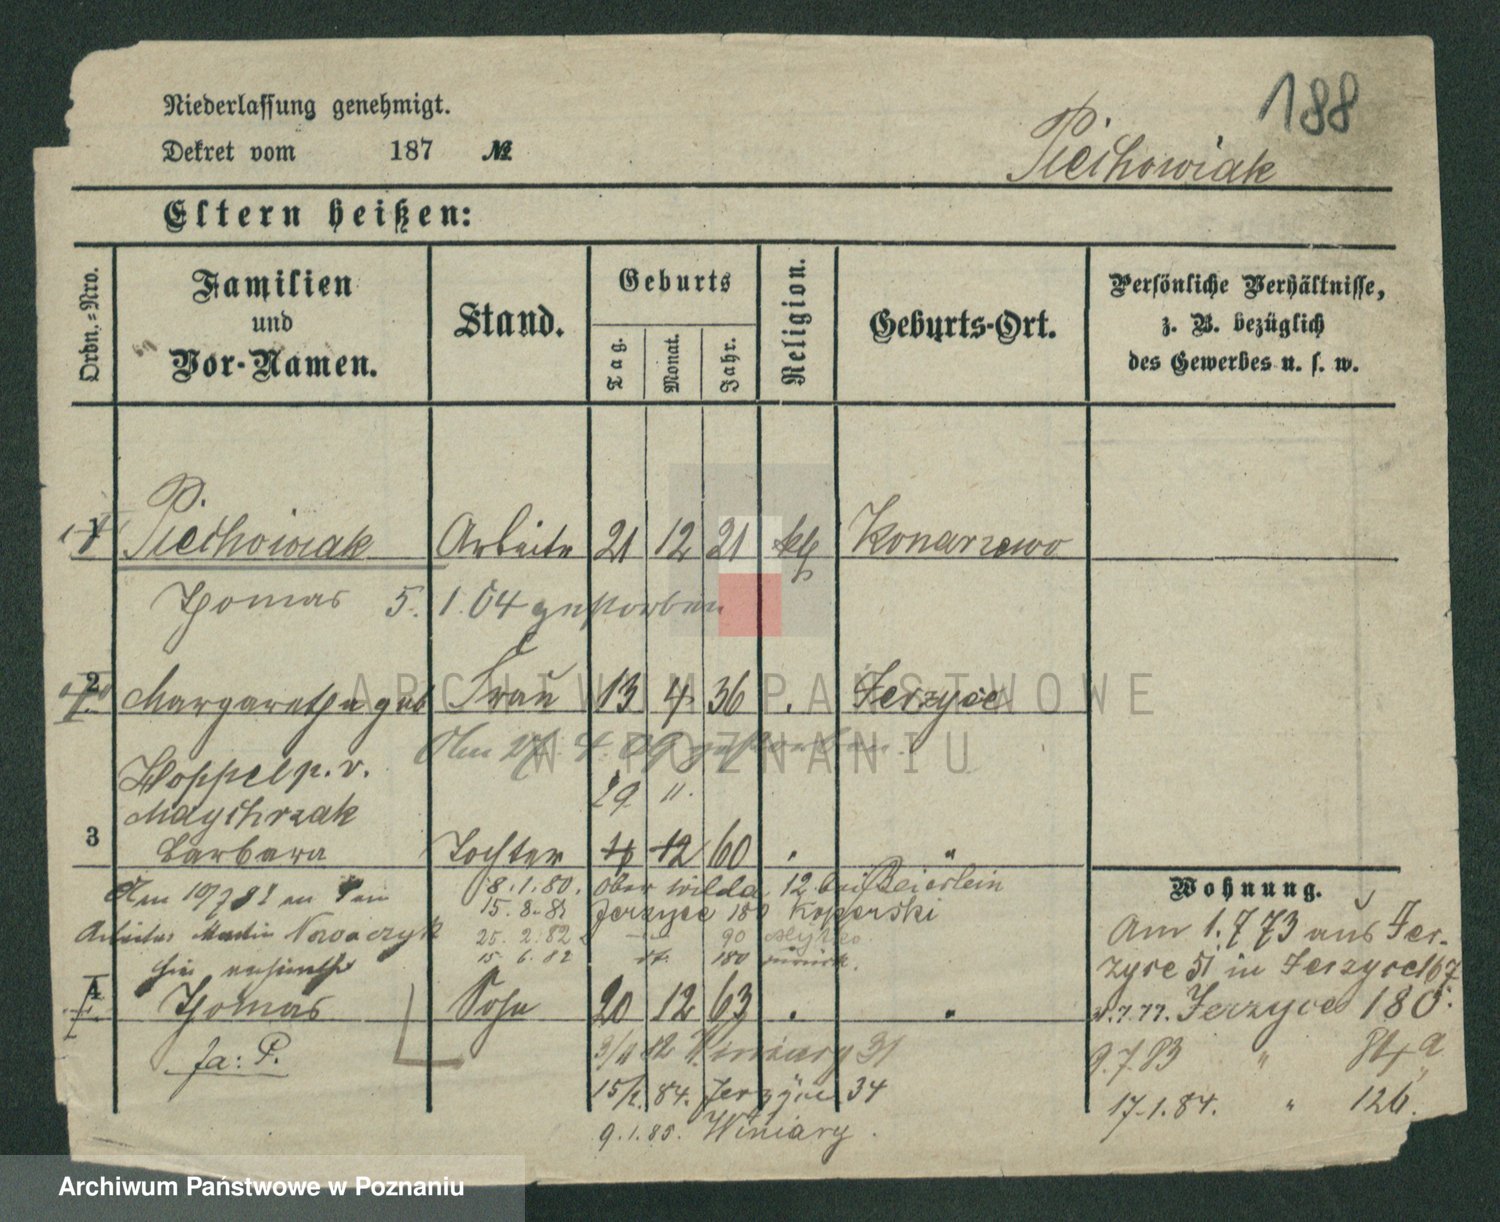 188
Niederlassung genehmigt.
Dekret vom 187 №
Piechowiak
Eltern heißen:
Ordn.=Nro.
Familien
und
Vor-Namen.
Stand.
Geburts
Tag.
Monat.
Jahr.
Religion.
Geburts-Ort.
Persönliche Verhältnisse,
z. B. bezüglich
des Gewerbes u. s. w.
P.
1 Piechowiak Arbeiter 21 12 21 kth Konarzewo
Thomas 5. 1. 04 gestorben
2 Margaretha geb Frau 13 4 36 . Jerzyce
Am 4. 09 gestorben.
Hoppel p. v.
29 11.
Maychrzak
3 Barbara Tochter 12 60 . "
Wohnung.
8. 1. 80. Ober Wilda 12 bei Beierlein
15. 8. Jerzyce 180 Koperski
Arbeiter Martin Nowaczyk 25. 2. 82 90
15. 6. 82 180 zurück.
Am 1. 7 73 aus Jer-
zyce 51 in Jerzyce 167
7. 77. Jerzyce 180.
9. 7. 83 " 84 a
17. 1. 84. " 126.
4 Thomas Sohn 20 12 63 . "
fa: P.
Winiary 31
84. Jerzyce 34
9. 1. 85. Winiary.
ARCHIWUM PAŃSTWOWE
W POZNANIU
Archiwum Państwowe w Poznaniu